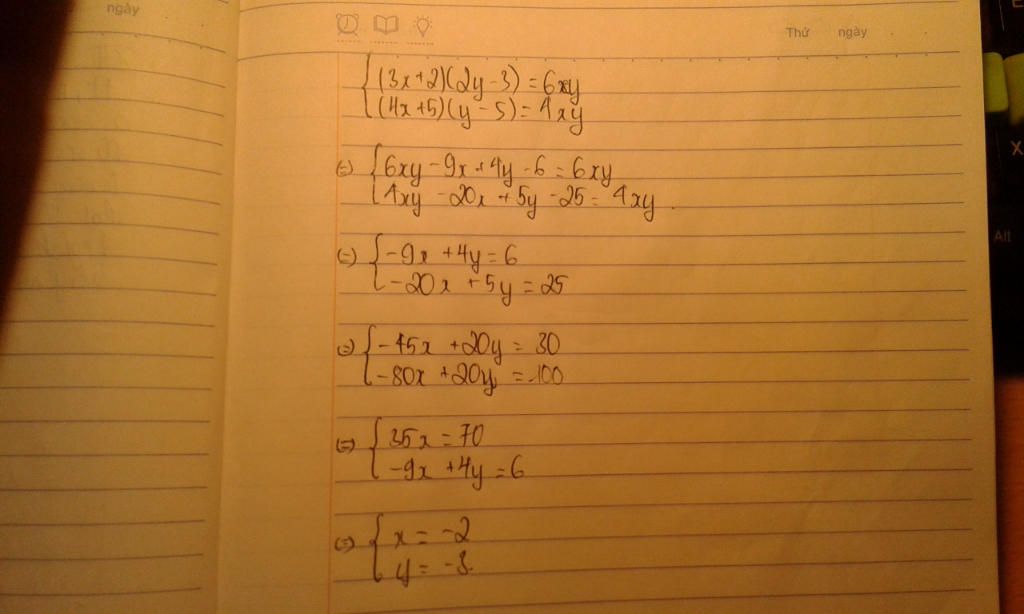 ngày
Thứ ngày
(3x+2)(2y-3) = 6xy
(4x+5)(y-5) = 4xy
(=) 6xy - 9x + 4y - 6 = 6xy
4xy - 20x + 5y - 25 = 4xy.
(=) -9x + 4y = 6
-20x + 5y = 25
(=) -45x + 20y = 30
-80x + 20y = 100
(=) 35x = 70
-9x + 4y = 6
(=) x = -2
y = -3.
E
X
Alt